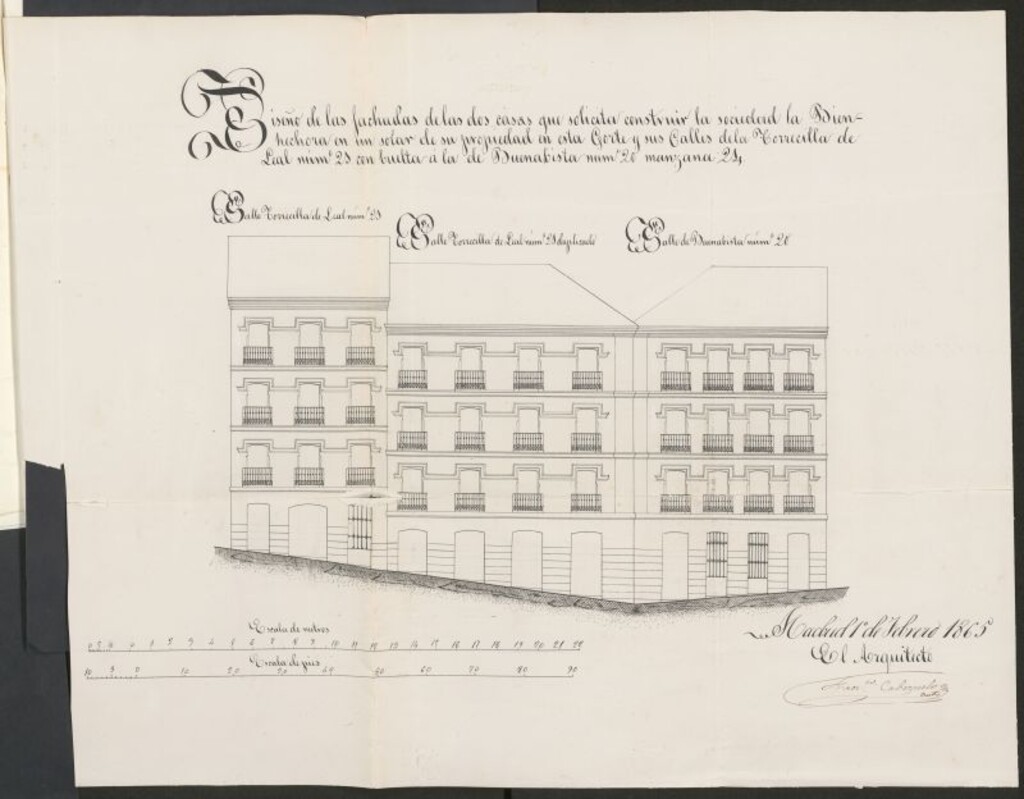 Diseño de las fachadas de las dos casas que solicita construir la sociedad la Bien-
hechora en un solar de su propiedad en esta Corte y sus Calles dela Torrecilla de
Leal núm.º 23 con buelta á la de Buenabista núm.º 20 manzana 24,
Calle Torrecilla de Leal núm.º 23
Calle Torrecilla de Leal núm.º 23 duplicado
Calle de Buenabista núm.º 20
Escala de metros
1 2 3 4 5 6 7 8 9 10 11 12 13 14 15 16 17 18 19 20 21 22
Escala de pies
10 5 0 10 20 30 40 60 70 80 90
Madrid 1º de Febrero 1865
El Arquitecto
Fran.co Cabezuelo